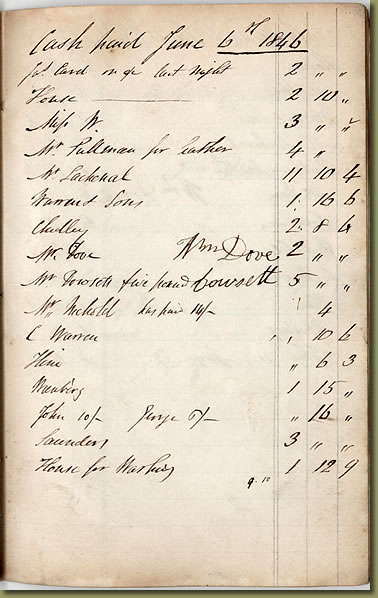 Cash paid June 6th 1846
last night 2 " "
House 2 10 "
Miss W. 3 " "
Mr Pullman for leather 4 " "
Mr Lachenal 11 10 4
Warren & Sons 1 16 6
Chelley 2 8 6
Mr Dove Wm Dove 2 " "
Mr Dowsett five pound Dowsett 5 " "
Mr Nicholl has paid 14/- 4
C Warren " 10 6
Hine " 6 3
1 15 "
John 10/- George 6/- " 16 "
Saunders 3 " "
House for Washing 1 12 9
9.10